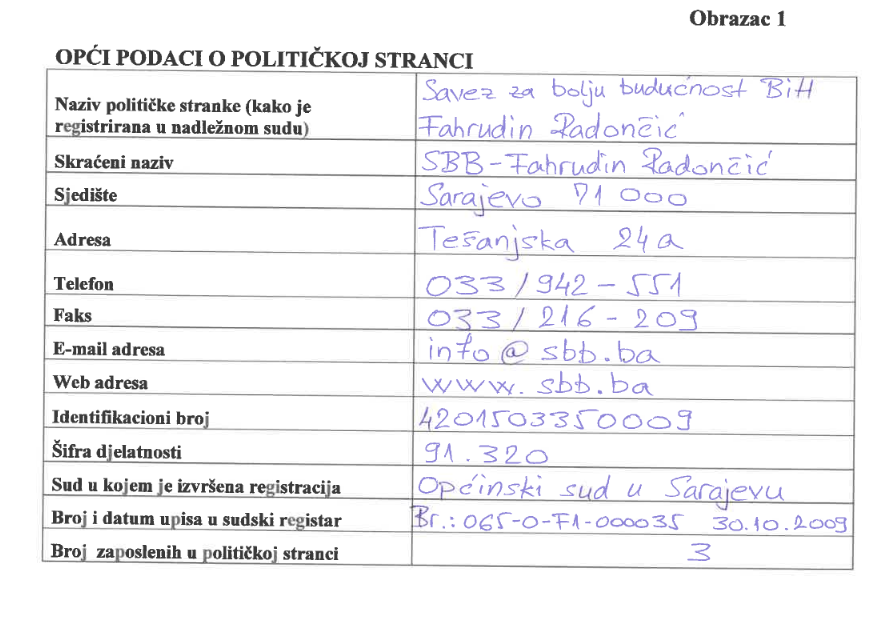 Obrazac 1
OPĆI PODACI O POLITIČKOJ STRANCI
Naziv političke stranke (kako je
registrirana u nadležnom sudu)
Savez za bolju budućnost BiH
Fahrudin Radončić
Skraćeni naziv
SBB-Fahrudin Radončić
Sjedište
Sarajevo 71 000
Adresa
Tešanjska 24a
Telefon
033/942-551
Faks
033/216-209
E-mail adresa
info@sbb.ba
Web adresa
www.sbb.ba
Identifikacioni broj
4201503350009
Šifra djelatnosti
91.320
Sud u kojem je izvršena registracija
Općinski sud u Sarajevu
Broj i datum upisa u sudski registar
Br.: 065-0-F1-000035 30.10.2009
Broj zaposlenih u političkoj stranci
3